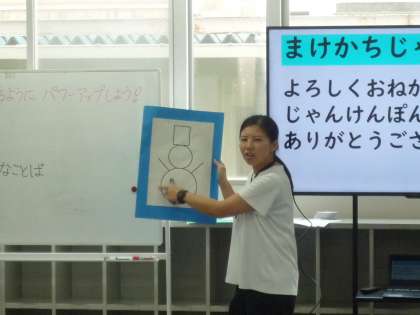 ように パワーアップしよう!!
なことば
まけかちじゃ
よろしくおねか
じゃんけんぽん
ありがとうござ